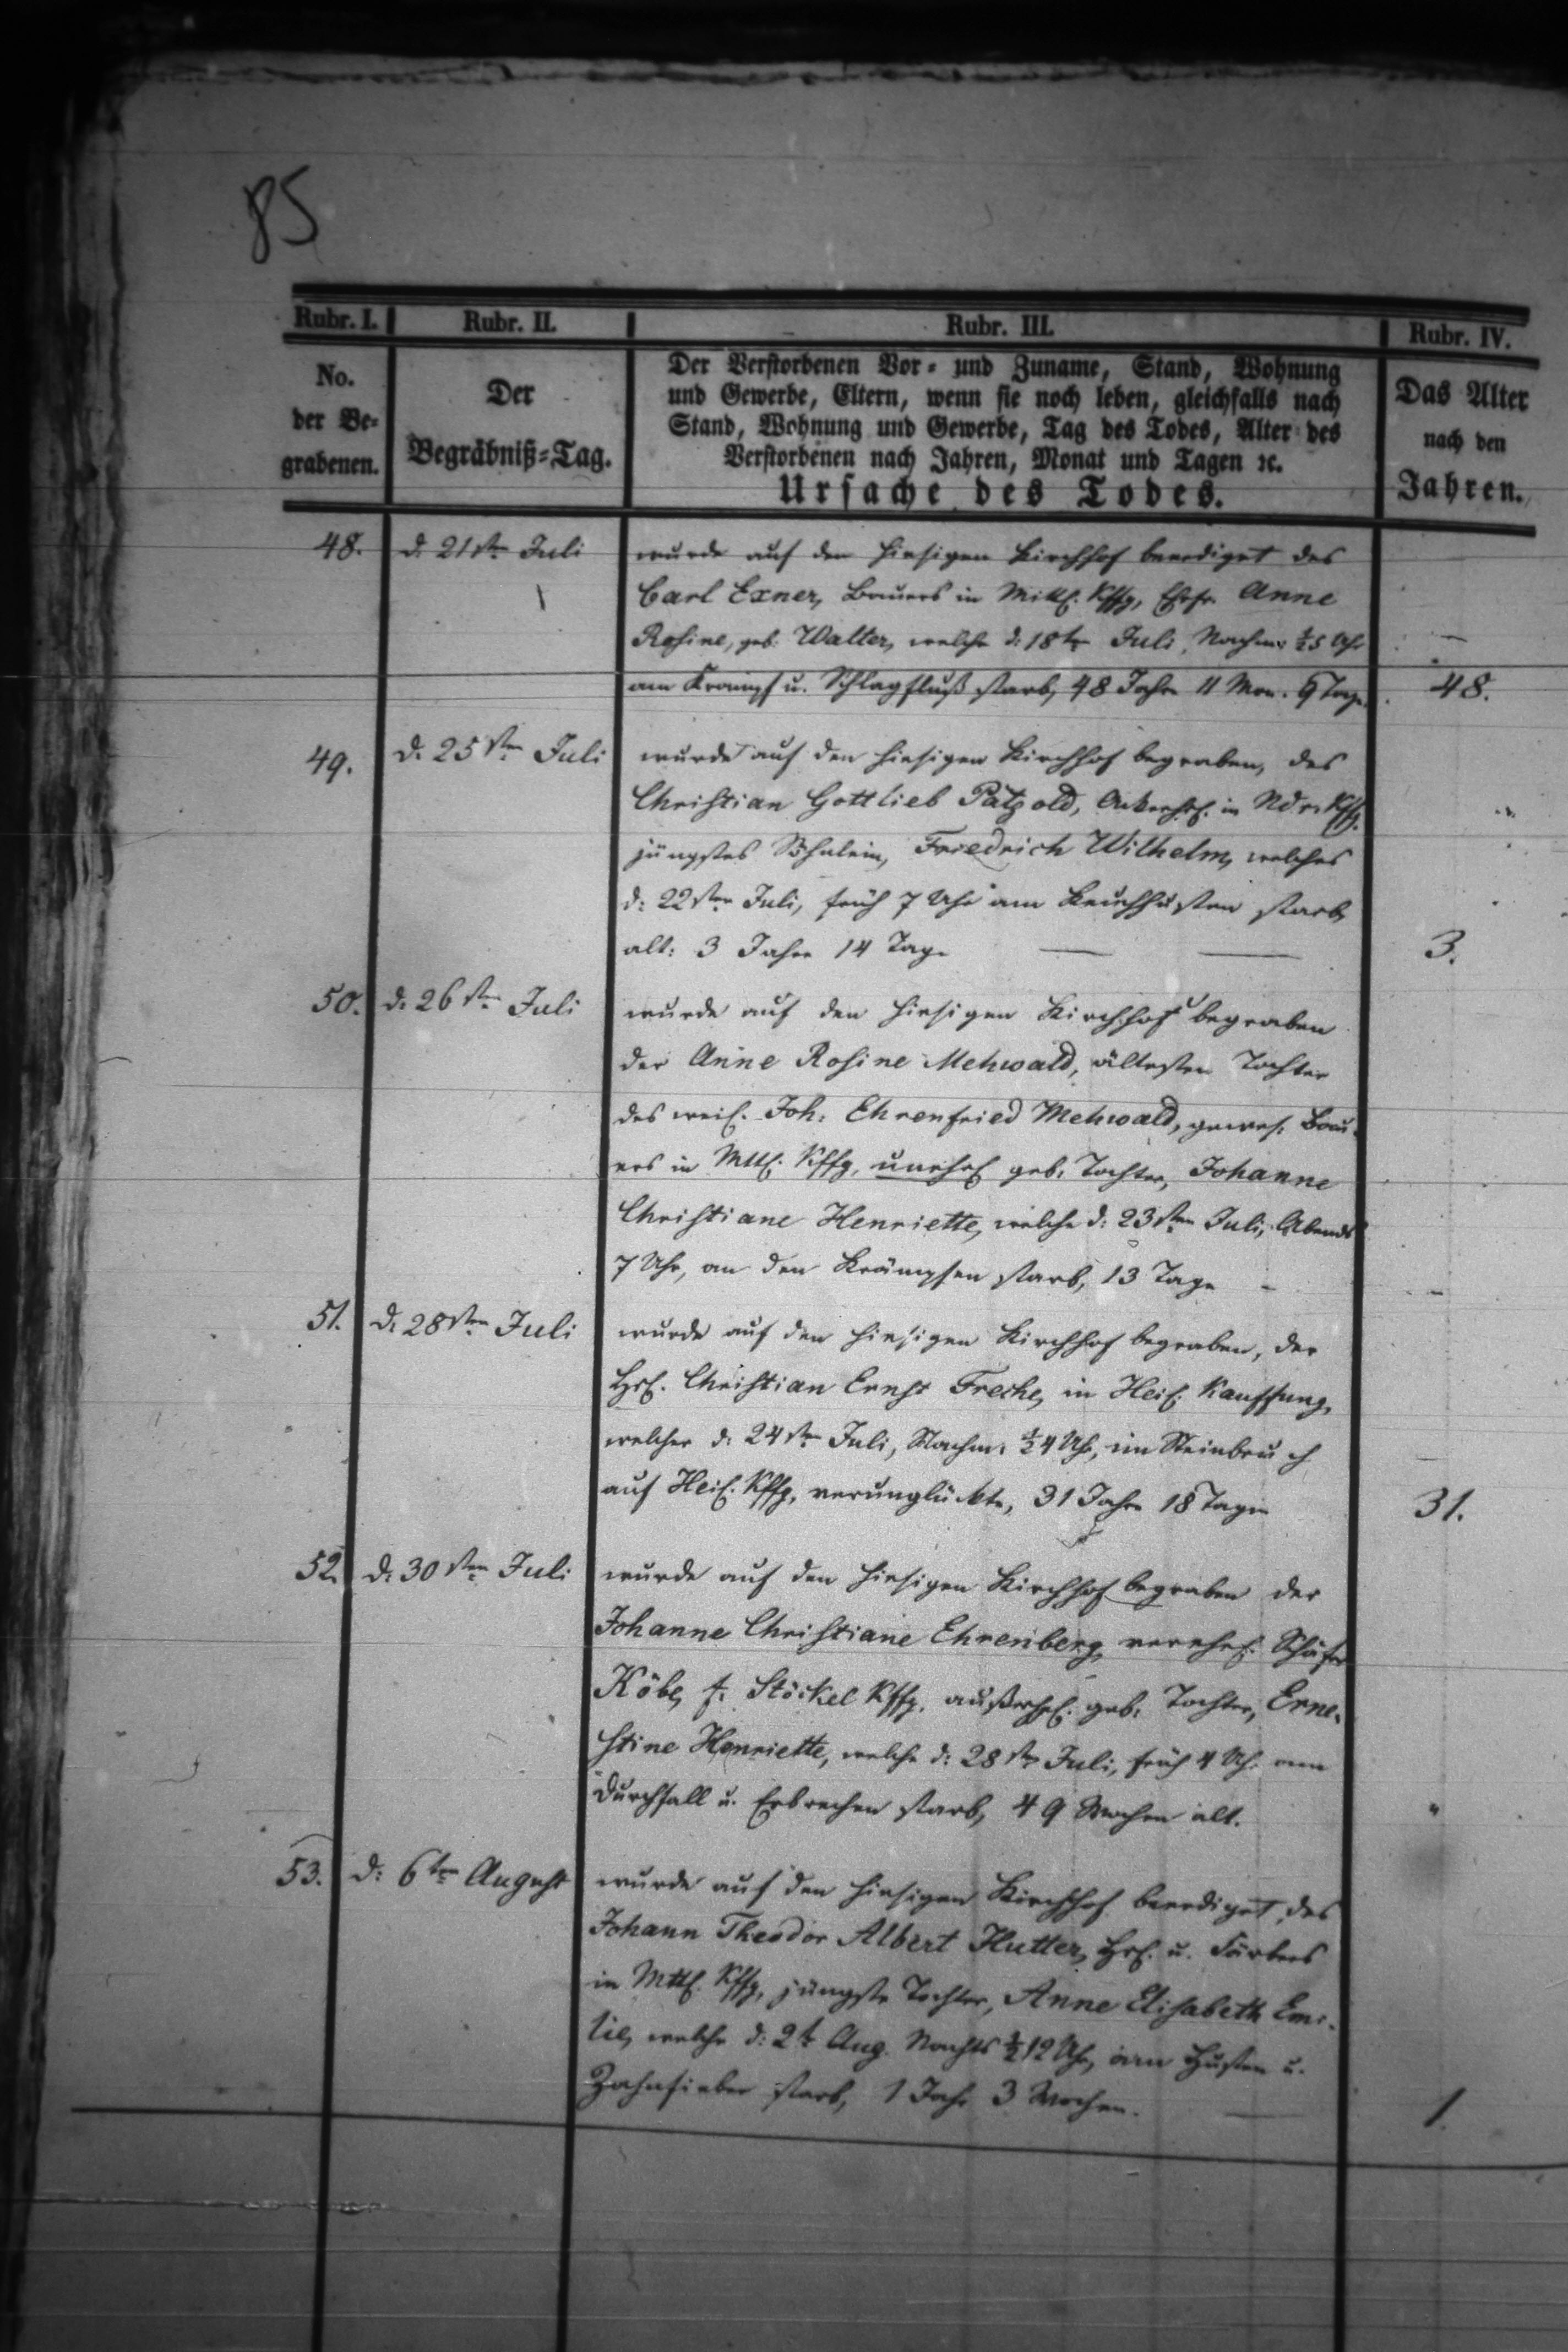 85
Rubr. I. Rubr. II. Rubr. III. Rubr. IV.
No.
der Be-
grabenen.
Der
Begräbniß-Tag.
Der Verstorbenen Vor- und Zuname, Stand, Wohnung
und Gewerbe, Eltern, wenn sie noch leben, gleichfalls nach
Stand, Wohnung und Gewerbe, Tag des Todes, Alter des
Verstorbenen nach Jahren, Monat und Tagen ꝛc.
Ursache des Todes.
Das Alter
nach den
Jahren.
48. d. 21sten Juli wurde auf den hiesigen Kirchhof beerdiget des
Carl Exner, Bauers in Mittl. Kffg, Ehefr. Anne
Rosine, geb. Walter, welche d. 18ten Juli, Nachm: ½5 Uhr
am Krampf u. Schlagfluß starb, 48 Jahre 11 Mon. 9 Tage. 48.
49. d. 25sten Juli wurde auf den hiesigen Kirchhof begraben, des
Christian Gottlieb Pätzold, in Ndr. Kffg.
jüngstes Söhnlein, Friedrich Wilhelm, welches
d: 22sten Juli, früh 7 Uhr am Keuchhusten starb,
alt: 3 Jahre 14 Tage 3.
50. d. 26sten Juli wurde auf den hiesigen Kirchhof begraben
der Anne Rosine Mehwald, ältesten Tochter
des weil. Joh: Ehrenfried Mehwald, gewes. Bau-
ers in Mttl. Kffg, unehel geb: Tochter, Johanne
Christiane Henriette, welche d: 23sten Juli, Abends
7 Uhr, an den Krämpfen starb, 13 Tage -
51. d. 28sten Juli wurde auf den hiesigen Kirchhof begraben, der
Hsl. Christian Ernst Freche, in Heil. Kauffung,
welcher d. 24sten Juli, Nachm: ½4 Uhr, im Steinbruch
auf Heil. Kffg, verunglückte, 31 Jahre 18 Tage 31.
52. d. 30sten Juli wurde auf den hiesigen Kirchhof begraben der
Johanne Christiane Ehrenberg, verehel. Schäfer
Köbe, f. Stöckel Kffg. außerehel. geb: Tochter, Erne-
stine Henriette, welche d: 28sten Juli, früh 4 Uhr am
Durchfall u. Erbrechen starb, 49 Wochen alt. "
53. d: 6ten August wurde auf den hiesigen Kirchhof beerdiget des
Johann Theodor Albert Hutter, Hsl. u. Färbers
in Mttl. Kffg, jüngste Tochter, Anne Elisabeth Emi-
lie, welche d: 2t. Aug. Nachts ½12 Uhr, am Husten u.
Zahnfieber starb, 1 Jahr 3 Wochen. 1.